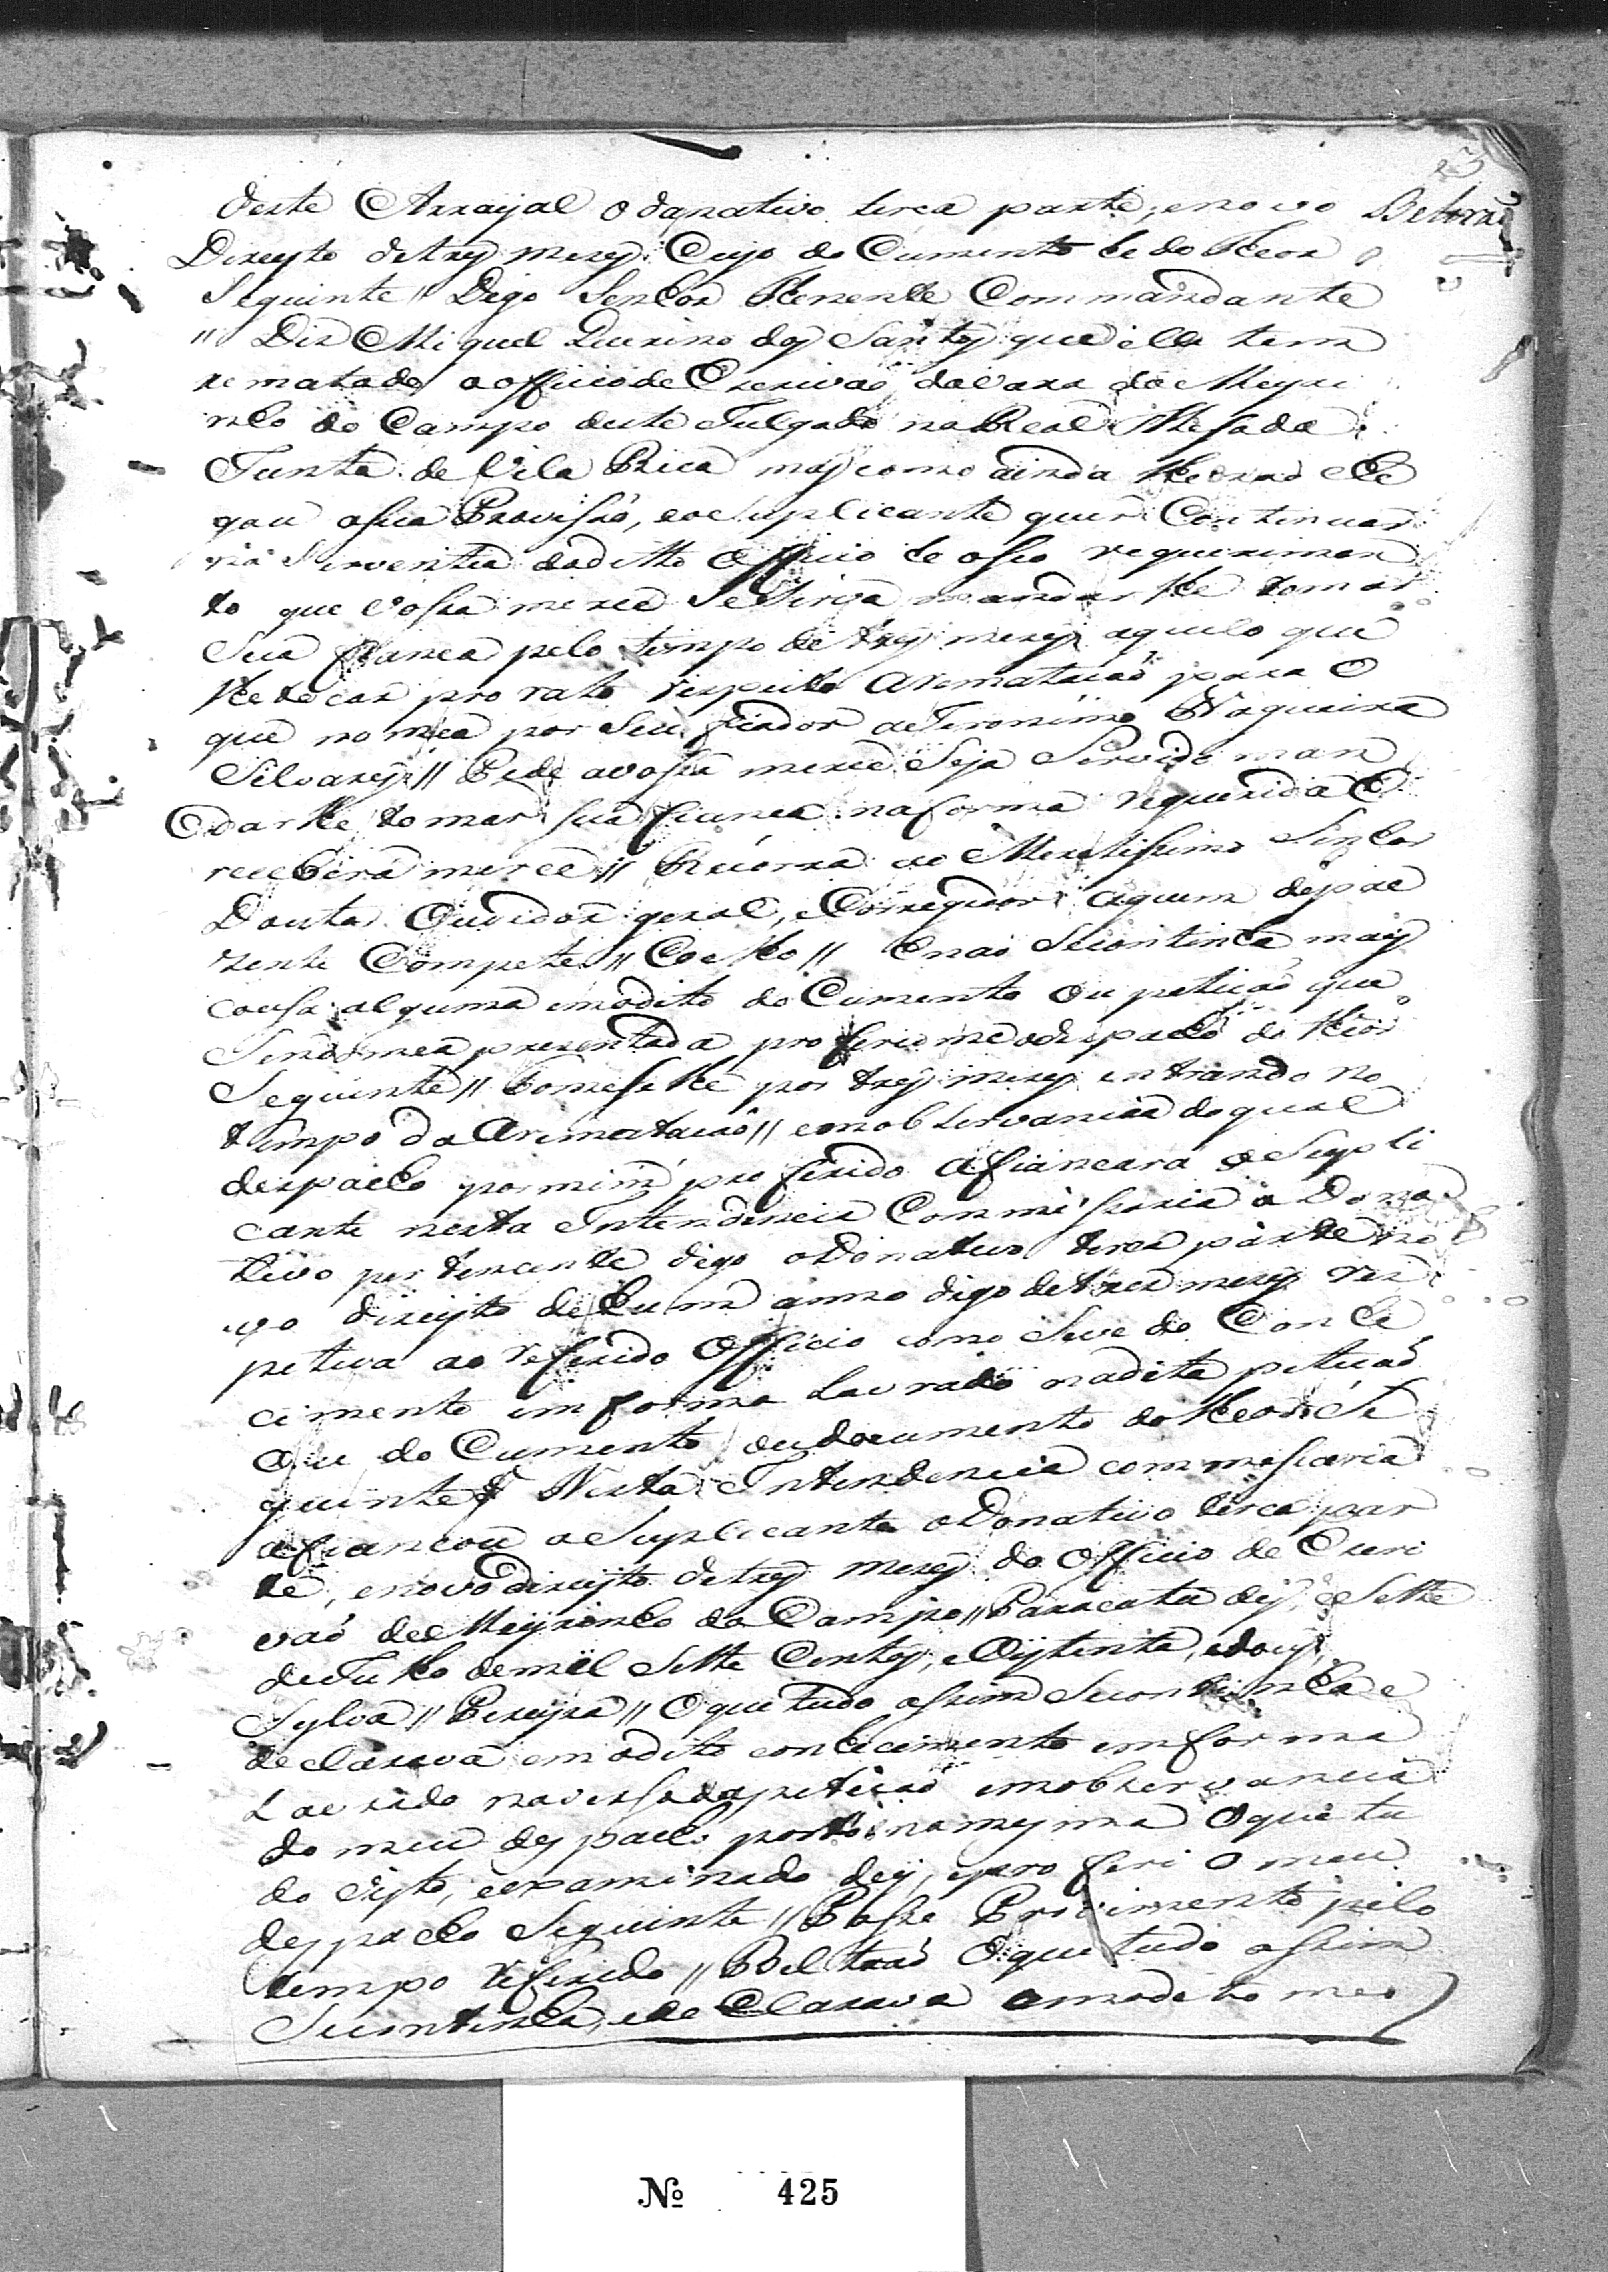 23
deste Arrayal o donativo terca parte, enovo Beltraó
Direyto detrez mezez Cujo do Cumento he do theor
Seguinte // Digo Senhor Thenente Commandante
// Diz Miguel Quirino dos Santos que elle tem
rematado o officio de Escrivaó davara do Meyri
nho do Campo deste Julgado na Real Mesa da
Junta de Vila Rica mas como ainda lhe naó che
gou asua Provisaó, eo Suplicante quer Continuar
na Serventia daditto officio he oseo requerimen
to que vossa merce Se Sirva mandar lhe tomar
Sua fianca pelo tempo de trez mezez aquelo que
lhe tocar pro rato respeito aremataçaó para o
que nomea por Seu fiador a Jeronimo Nogueira
Silvarez // Pede avossa merce Seja Servido man
darlhe tomar sua fianca na forma requerida E
recebera merce // Recorra ao Meretissimo Senhor
Doutor Ouvidor geral, eCorregedor aquem depre
zente Compete // Coelho // Enaó Secontinha mais
cousa alguma emodito do Cumento Ou petiçaó que
Sendomea prezentada proferiomeodespacho do theor
Seguinte // Tomese lhe por trez mezez entrando no
tempo da Arematacaó // emobservancia doqual
despacho por mim proferido afiancara oSupli
cante nesta Intendencia Commissaria o Dona
tivo pertencente digo oDonativo terca parte eno
vo direyto de hum anno digo de trez mezez res
petiva ao referido Officio como Seve do Conhe
cimento em forma Lavrado nadita petiçaó
Ou do Cumento oudocumento do theor Se
guinte // Nesta Intendencia commissaria
afiancou oSuplicante oDonativo terca par
te, enovo direyto detrez mezez do Officio de Escri
vaó do Meyrinho do Campo // Paracatu dez, eSette
deJulho demil Sette Centos, eOytenta, edous,
Sylva // Pereyra // Oquetudo assim Secontinha e
declarava emodito conhecimento emforma
Lavrado naversadapetiçaó emobservancia
do meu despacho posto namesma Oquetu
do visto, eexaminado dey, eproferi o meu
despacho Seguinte // Passe Provimento pelo
tempo referido // Beltraó Oquetudo assim
Secontinha, ede Clarava emodito meo
Nº 425